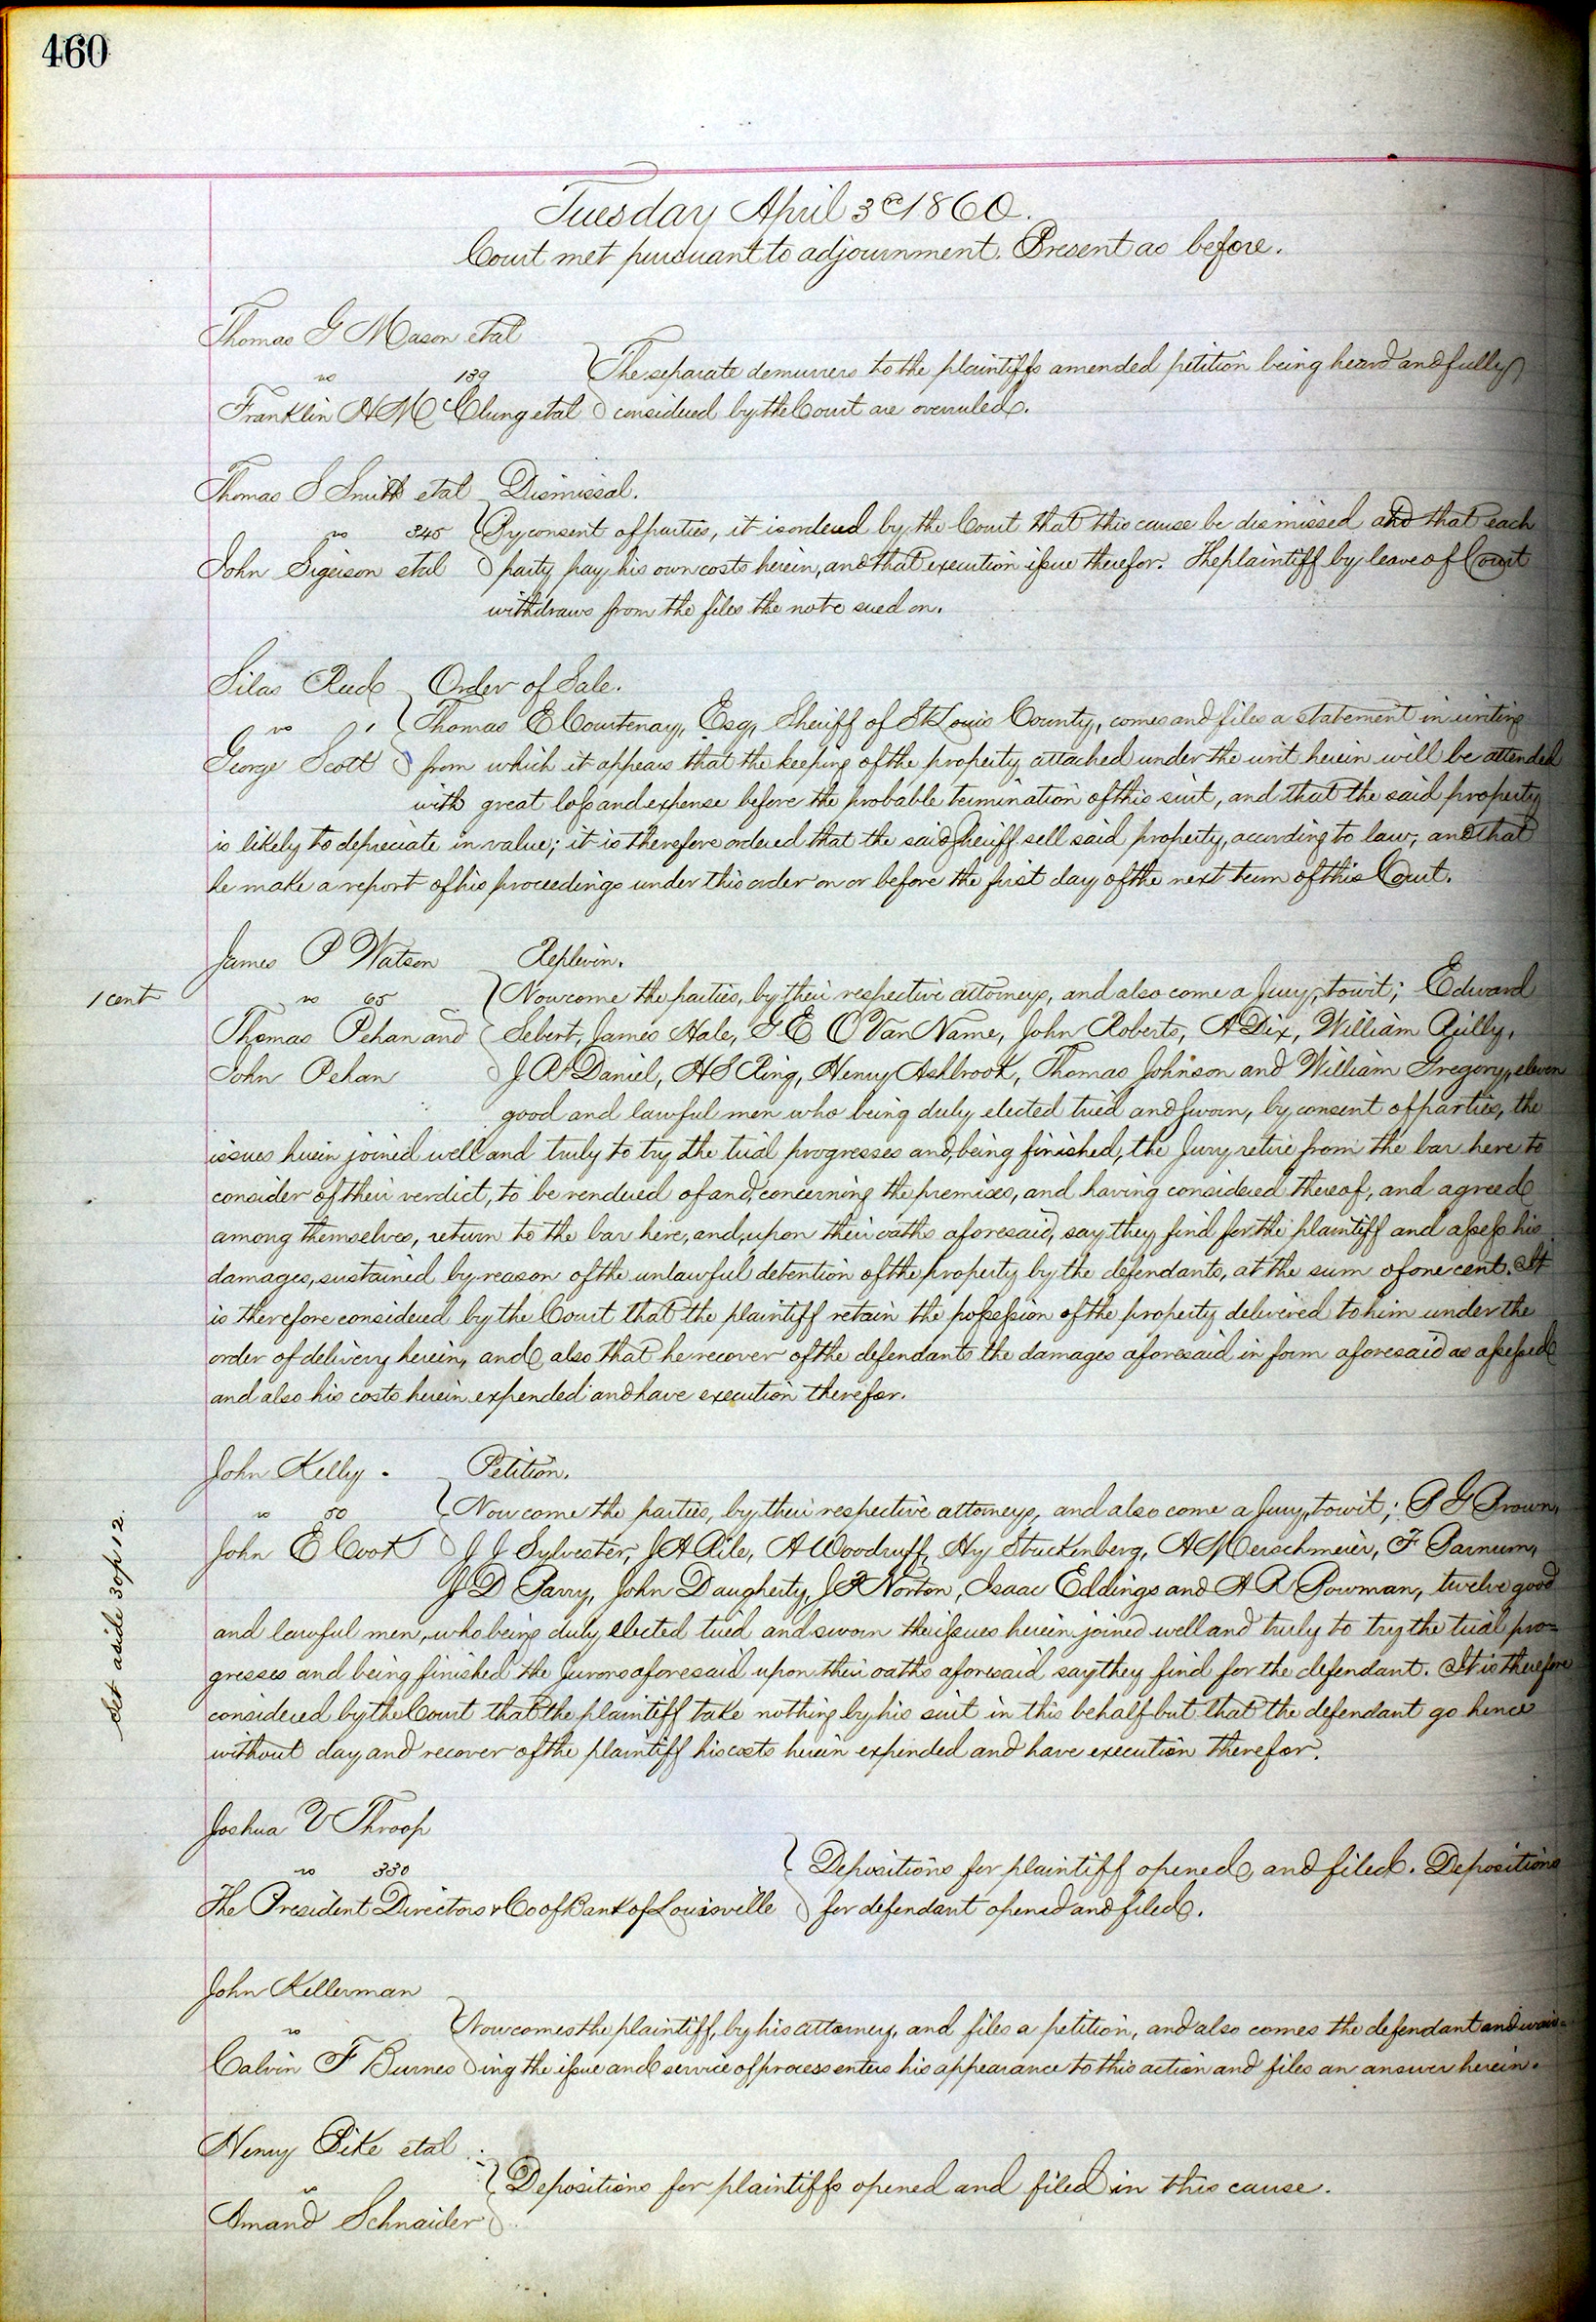 460
Tuesday April 3d 1860.
Court met pursuant to adjournment. Present as before.
Thomas G Mason etal
vs 139
Franklin A McClung etal
The separate demurrers to the plaintiffs amended petition being heard and fully
considered by the Court are overruled.
Thomas S Smith etal
vs 345
John Sigerson etal
Dismissal.
By consent of parties, it is ordered by the Court that this cause be dismissed and that each
party pay his own costs herein, and that execution issue therefor. The plaintiff by leave of Court
withdraws from the files the note sued on.
Silas Reed
vs
George Scott
Order of Sale.
Thomas E Courtenay, Esq, Sheriff of St Louis County, comes and files a statement in writing
from which it appears that the keeping of the property attached under the writ herein will be attended
with great loss and expense before the probable termination of this suit, and that the said property
is likely to depreciate in value; it is therefore ordered that the said Sheriff sell said property, according to law, and that
he make a report of his proceedings under this order on or before the first day of the next term of this Court.
James P Watson
1 cent
vs 65
Thomas Pehan and
John Pehan
Replevin.
Now come the parties, by their respective attorneys, and also come a Jury, towit; Edward
Sebert, James Hale, G E O Van Name, John Roberts, A Dix, William Reilly,
J R Daniel, H S Ring, Henry Ashbrook, Thomas Johnson and William Gregory, eleven
good and lawful men who being duly elected tried and sworn, by consent of parties, the
issues herein joined well and truly to try the trial progresses and, being finished, the Jury retire from the bar here to
consider of their verdict, to be rendered of and, concerning the premises, and having considered thereof, and agreed
among themselves, return to the bar here, and, upon their oaths aforesaid, say they find for the plaintiff and assess his
damages, sustained by reason of the unlawful detention of the property by the defendants, at the sum of one cent. It
is therefore considered by the Court that the plaintiff retain the possession of the property delivered to him under the
order of delivery herein, and also that he recover of the defendants the damages aforesaid in form aforesaid as assessed
and also his costs herein expended and have execution therefor.
Set aside 30p12.
John Kelly.
vs 50
John E Cook
Petition.
Now come the parties, by their respective attorneys, and also come a Jury, towit; P G Brown,
J J Sylvester, J A Rile, A Woodruff, Hy Stuckenberg, A Merschmeier, F Barnum,
J D Parry, John Daugherty, J R Norton, Isaac Eddings and A R Bowman, twelve good
and lawful men, who being duly elected tried and sworn the issues herein joined well and truly to try the trial pro-
gresses and being finished the Jurors aforesaid upon their oaths aforesaid say they find for the defendant. It is therefore
considered by the Court that the plaintiff take nothing by his suit in this behalf but that the defendant go hence
without day and recover of the plaintiff his costs herein expended and have execution therefor.
Joshua V Throop
vs 330
The President Directors & Co of Bank of Louisville
Depositions for plaintiff opened and filed. Depositions
for defendant opened and filed.
John Kellerman
vs
Calvin F Burnes
Now comes the plaintiff, by his attorney, and files a petition, and also comes the defendant and waiv-
ing the issue and service of process enters his appearance to this action and files an answer herein.
Henry Pike etal
vs
Amand Schnaider
Depositions for plaintiffs opened and filed in this cause.